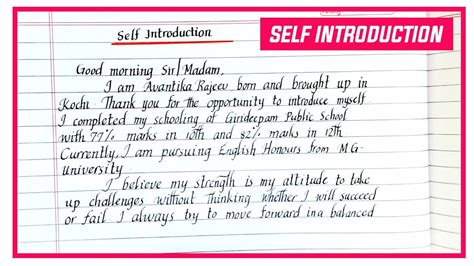 Self Introduction
SELF INTRODUCTION
Good morning Sir/Madam,
I am Avantika Rajeev born and brought up in
Kochi. Thank you for the opportunity to introduce myself.
I completed my schooling at Girideepam Public School
with 77% marks in 10th and 82% marks in 12th
Currently, I am pursuing English Honours from MG-
University
I believe my strength is my attitude to take
up challenges without thinking whether I will succeed
or fail. I always try to move forward in a balanced